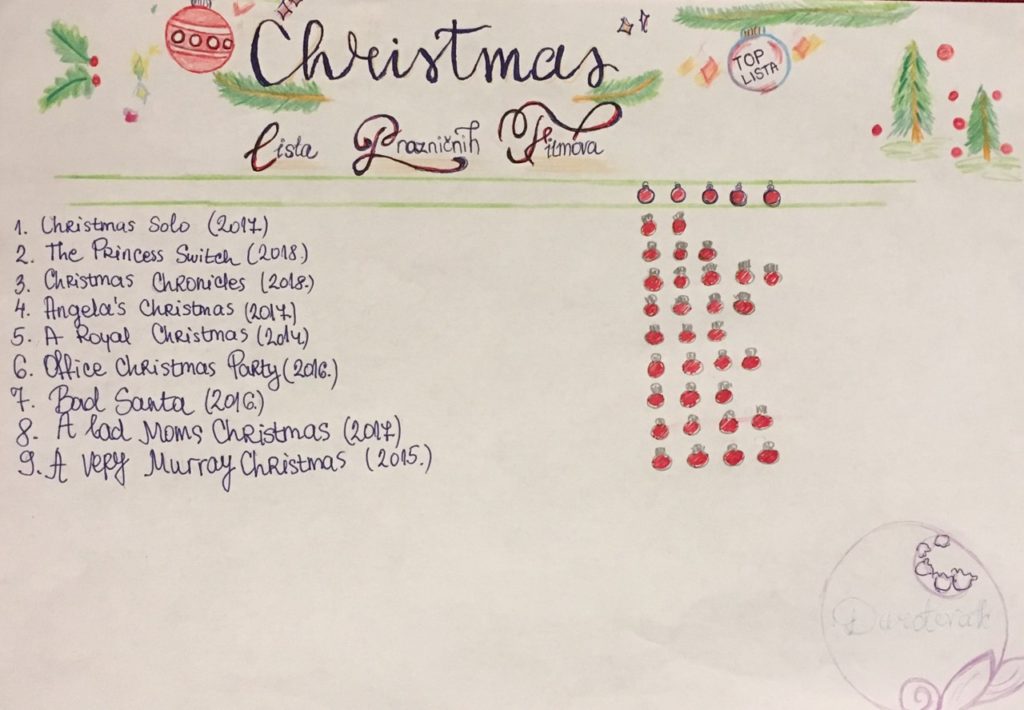 Christmas
TOP
LISTA
Lista Prazničnih Filmova
1. Christmas Solo (2017.)
2. The Princess Switch (2018.)
3. Christmas Chronicles (2018.)
4. Angela's Christmas (2017.)
5. A Royal Christmas (2014.)
6. Office Christmas Party (2016.)
7. Bad Santa (2016.)
8. A bad Moms Christmas (2017)
9. A very Murray Christmas (2015.)